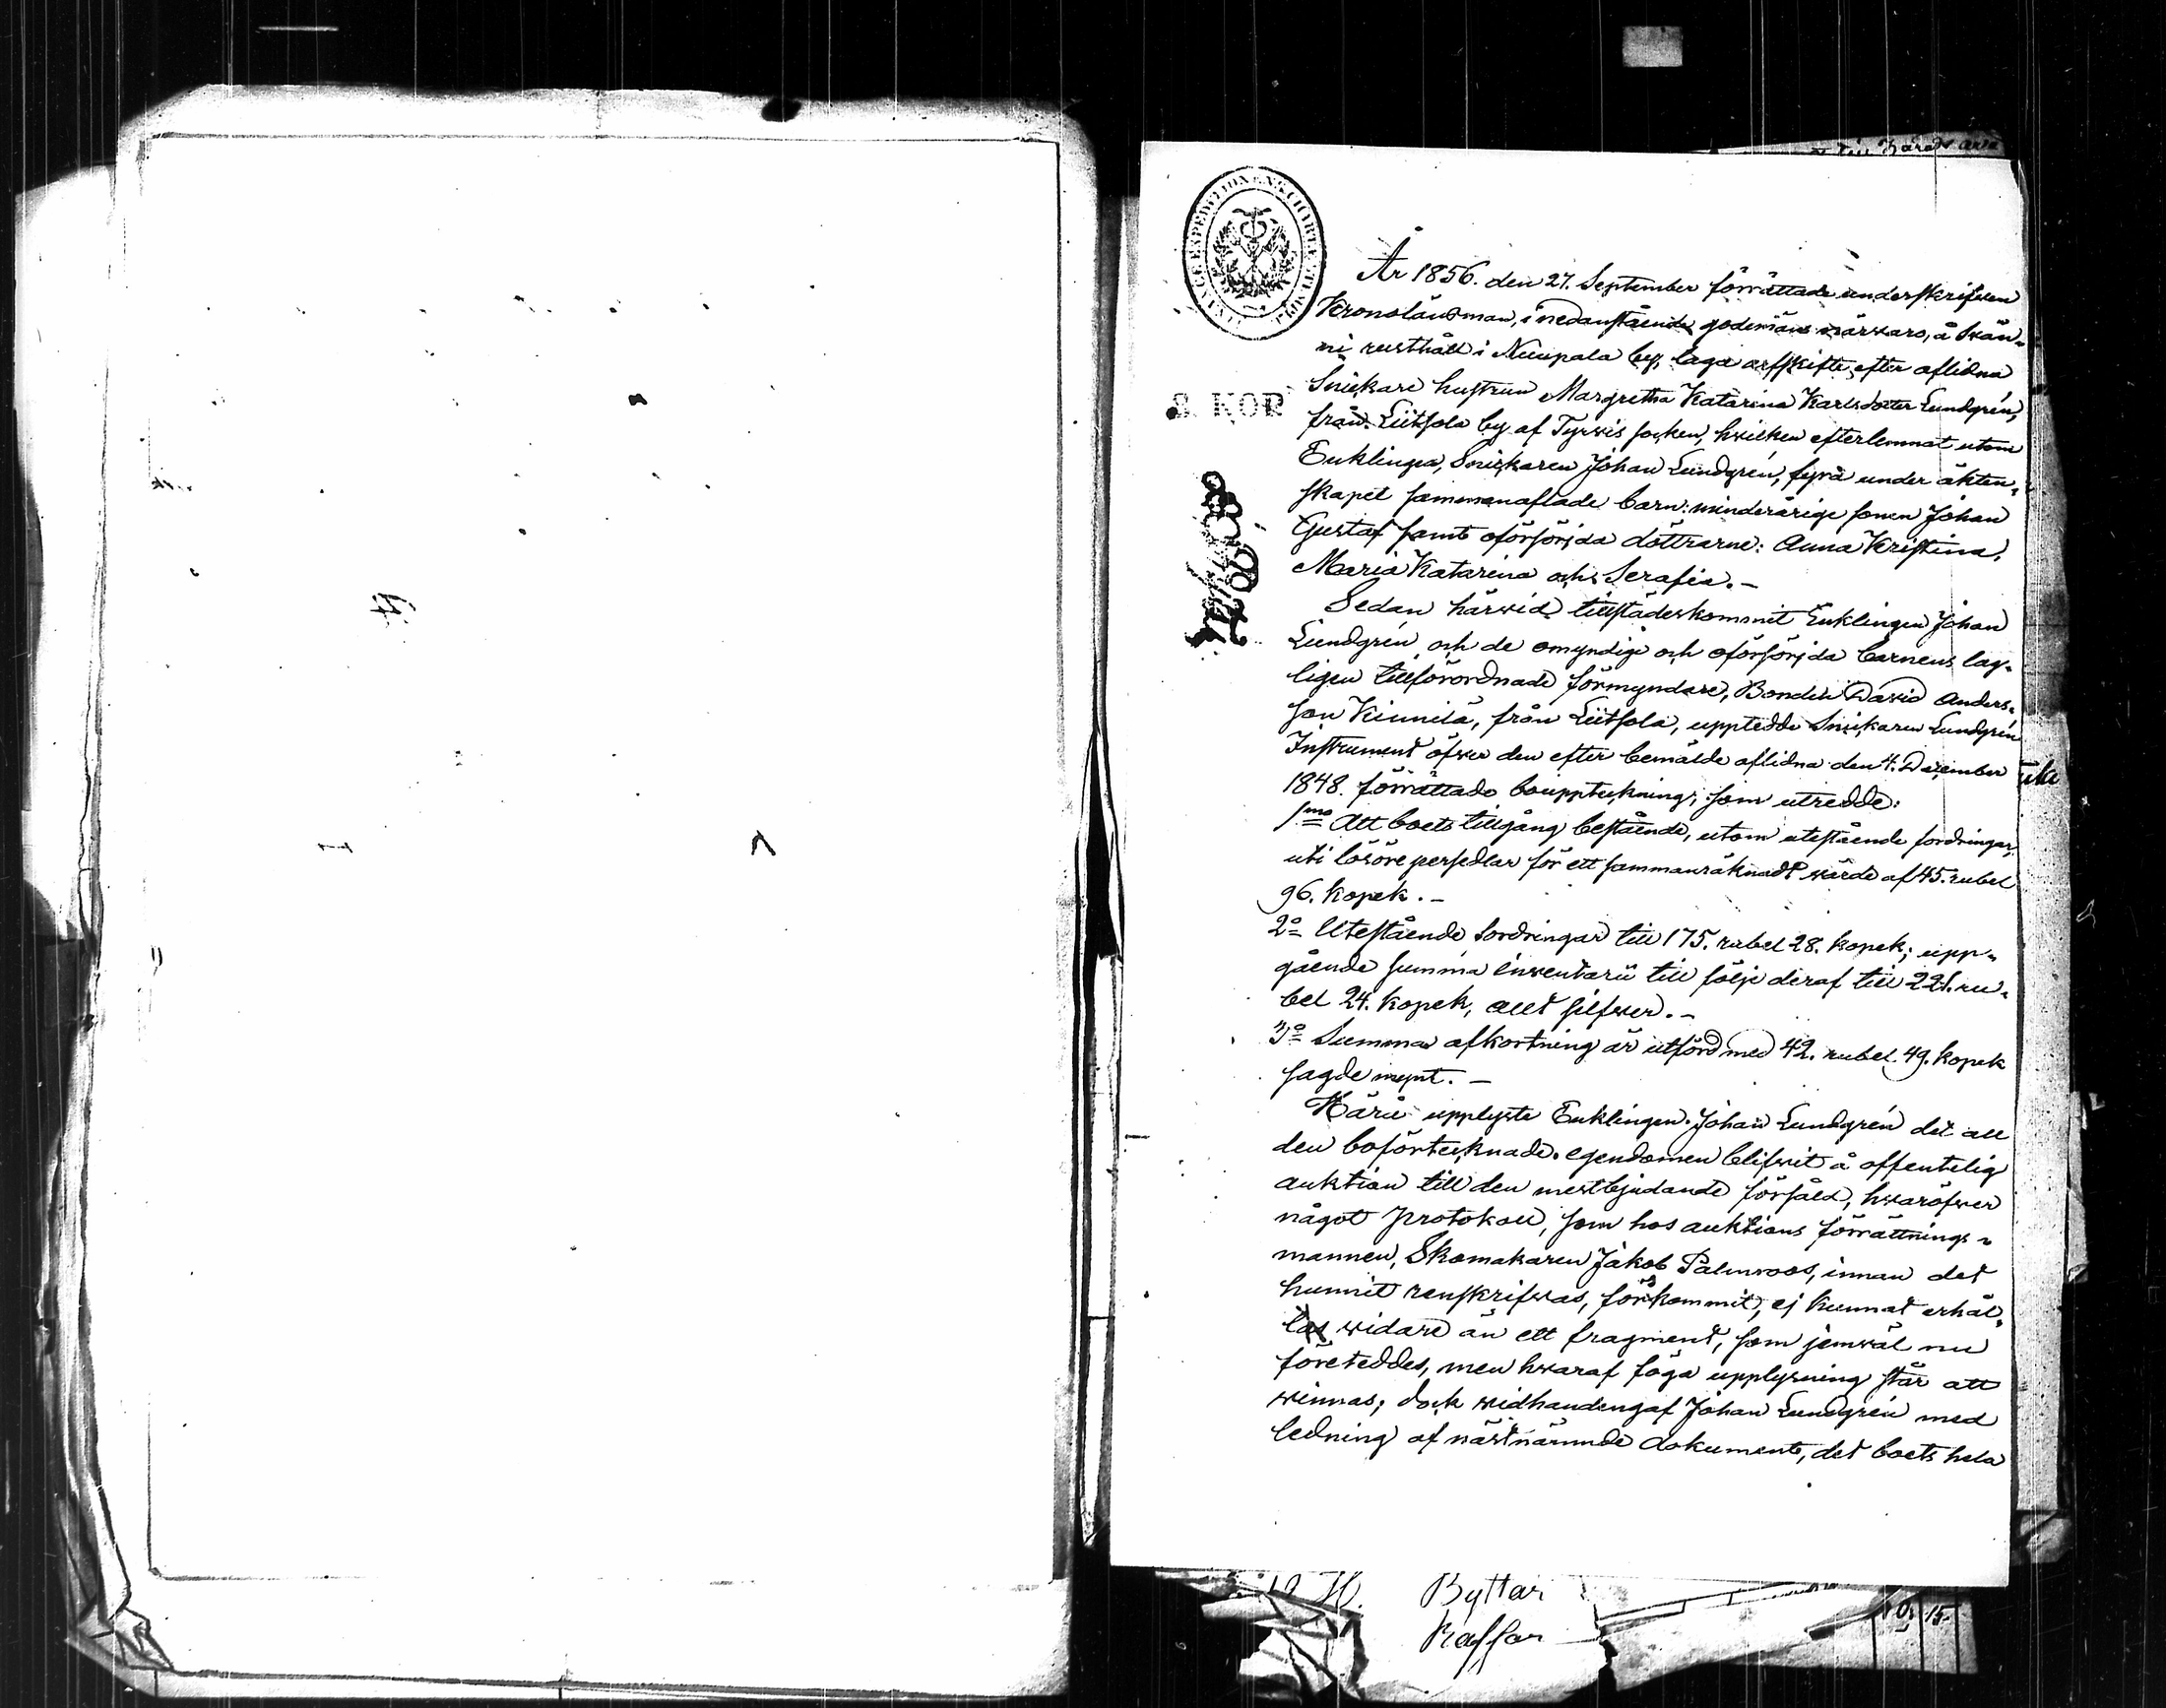 År 1856. den 27. September förrättade underskrifven
Kronolänsman, i nedanstående godemäns närvaro, å Svän-
ni rusthåll i Nuupala by, laga arfskifte efter aflidna
Snickare hustrun Margretha Katarina Karlsdotter Lundgrén,
från Liitsola by af Tyrvis socken, hvilken efterlemnat utom
Enklingen, Snickaren Johan Lundgrén, fyra under äkten-
skapet sammanaflade barn: minderårige sonen Johan
Gustaf samt oförsörjda döttrarne: Anna Kristina,
Maria Katarina och Serafia.–
Sedan härvid tillstädeskommit Enklingen Johan
Lundgrén och de omyndige och oförsörjda barnens lag-
ligen tillförordnade förmyndare, Bonden David Anders-
son Kinnilä, från Liitsola, uppteddde Snickaren Lundgrén
Instrument öfver den efter bemälde aflidna den 4. December
1848. förrättade bouppteckning, som utredde:
1mo Att boets tillgång bestående, utom utestående fordringar,
uti lösörepersedlar för ett sammanräknadt värde af 45. rubel
96. kopek.–
2o Utestående fordringar till 175. rubel 28. kopek; upp-
gående summa inventarii till följe deraf till 221. ru-
bel 24. kopek, allt silfver.–
3o Summa afkortning är utförd med 42. rubel 49. kopek
sagde mynt.–
Härå upplyste Enklingen Johan Lundgrén det all
den boförtecknade egendomen blifvit å offentelig
auktion till den mestbjudande försåld, hvaröfver
något protokoll, som hos auktions förrättnings-
mannen, Skomakaren Jakob Palmroos, innan det
hunnit renskrifvas, förkommit, ej kunnat erhål-
las vidare än ett fragment, som jemväl nu
företeddes, men hvaraf föga upplysning står att
vinnas; dock vidhandengaf Johan Lundgrén med
ledning af nästnämnde dokument, det boets hela
S. KOP
Byttor
Kaffor
15.